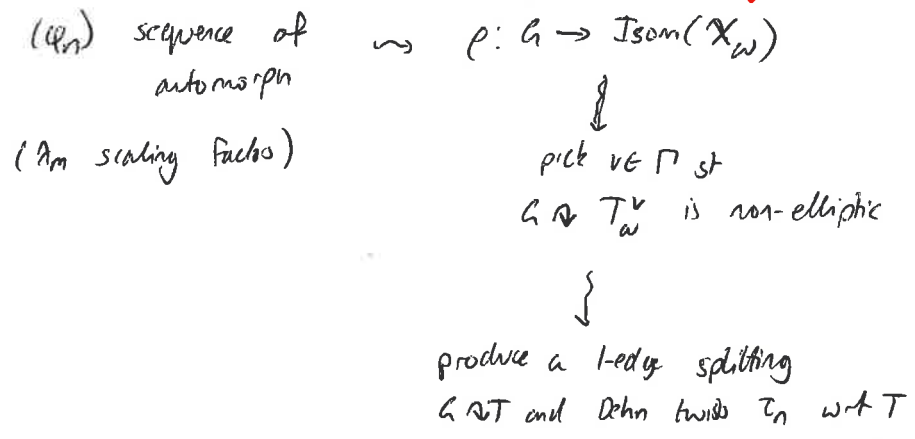 (φₙ) sequence of ⇝ ρ: G → Isom(X_ω)
automorph
(λₙ scaling factors)
pick v ∈ Γ st
G ↷ T_ω^v is non-elliptic
produce a 1-edge splitting
G ↷ T and Dehn twists τₙ wrt T